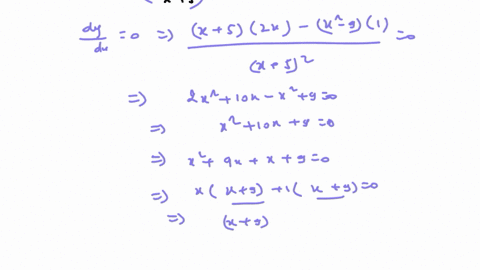 dy/dx = 0 => (x+5)(2x) - (x²-9)(1) / (x+5)² = 0
=> 2x² + 10x - x² + 9 = 0
=> x² + 10x + 9 = 0
=> x² + 9x + x + 9 = 0
=> x(x+9) + 1(x+9) = 0
=> (x+9)